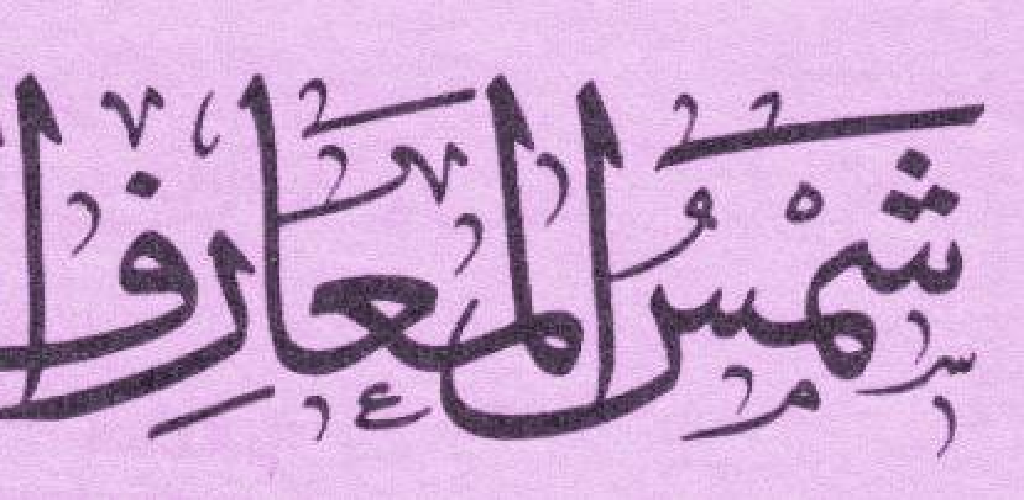 شَمْسُ المَعَارِف